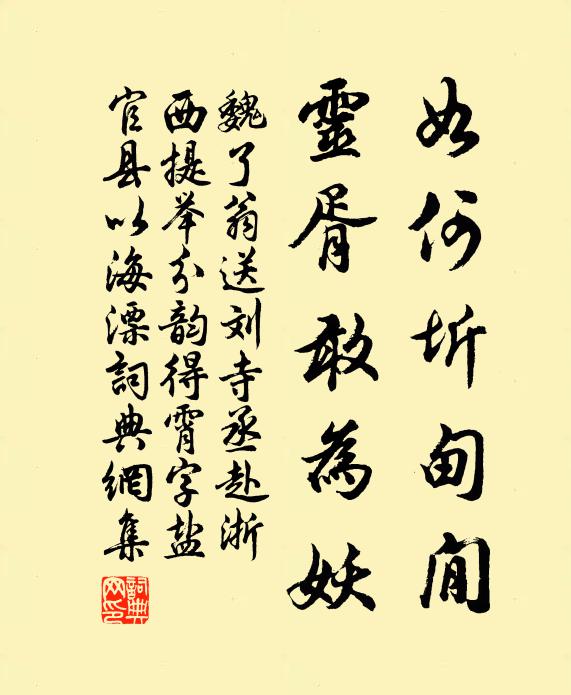 如何圻甸間
靈胥敢為妖
魏了翁送刘寺丞赴浙
西提举分韵得霄字盐
官县以海漂詞典網集
詞典网印